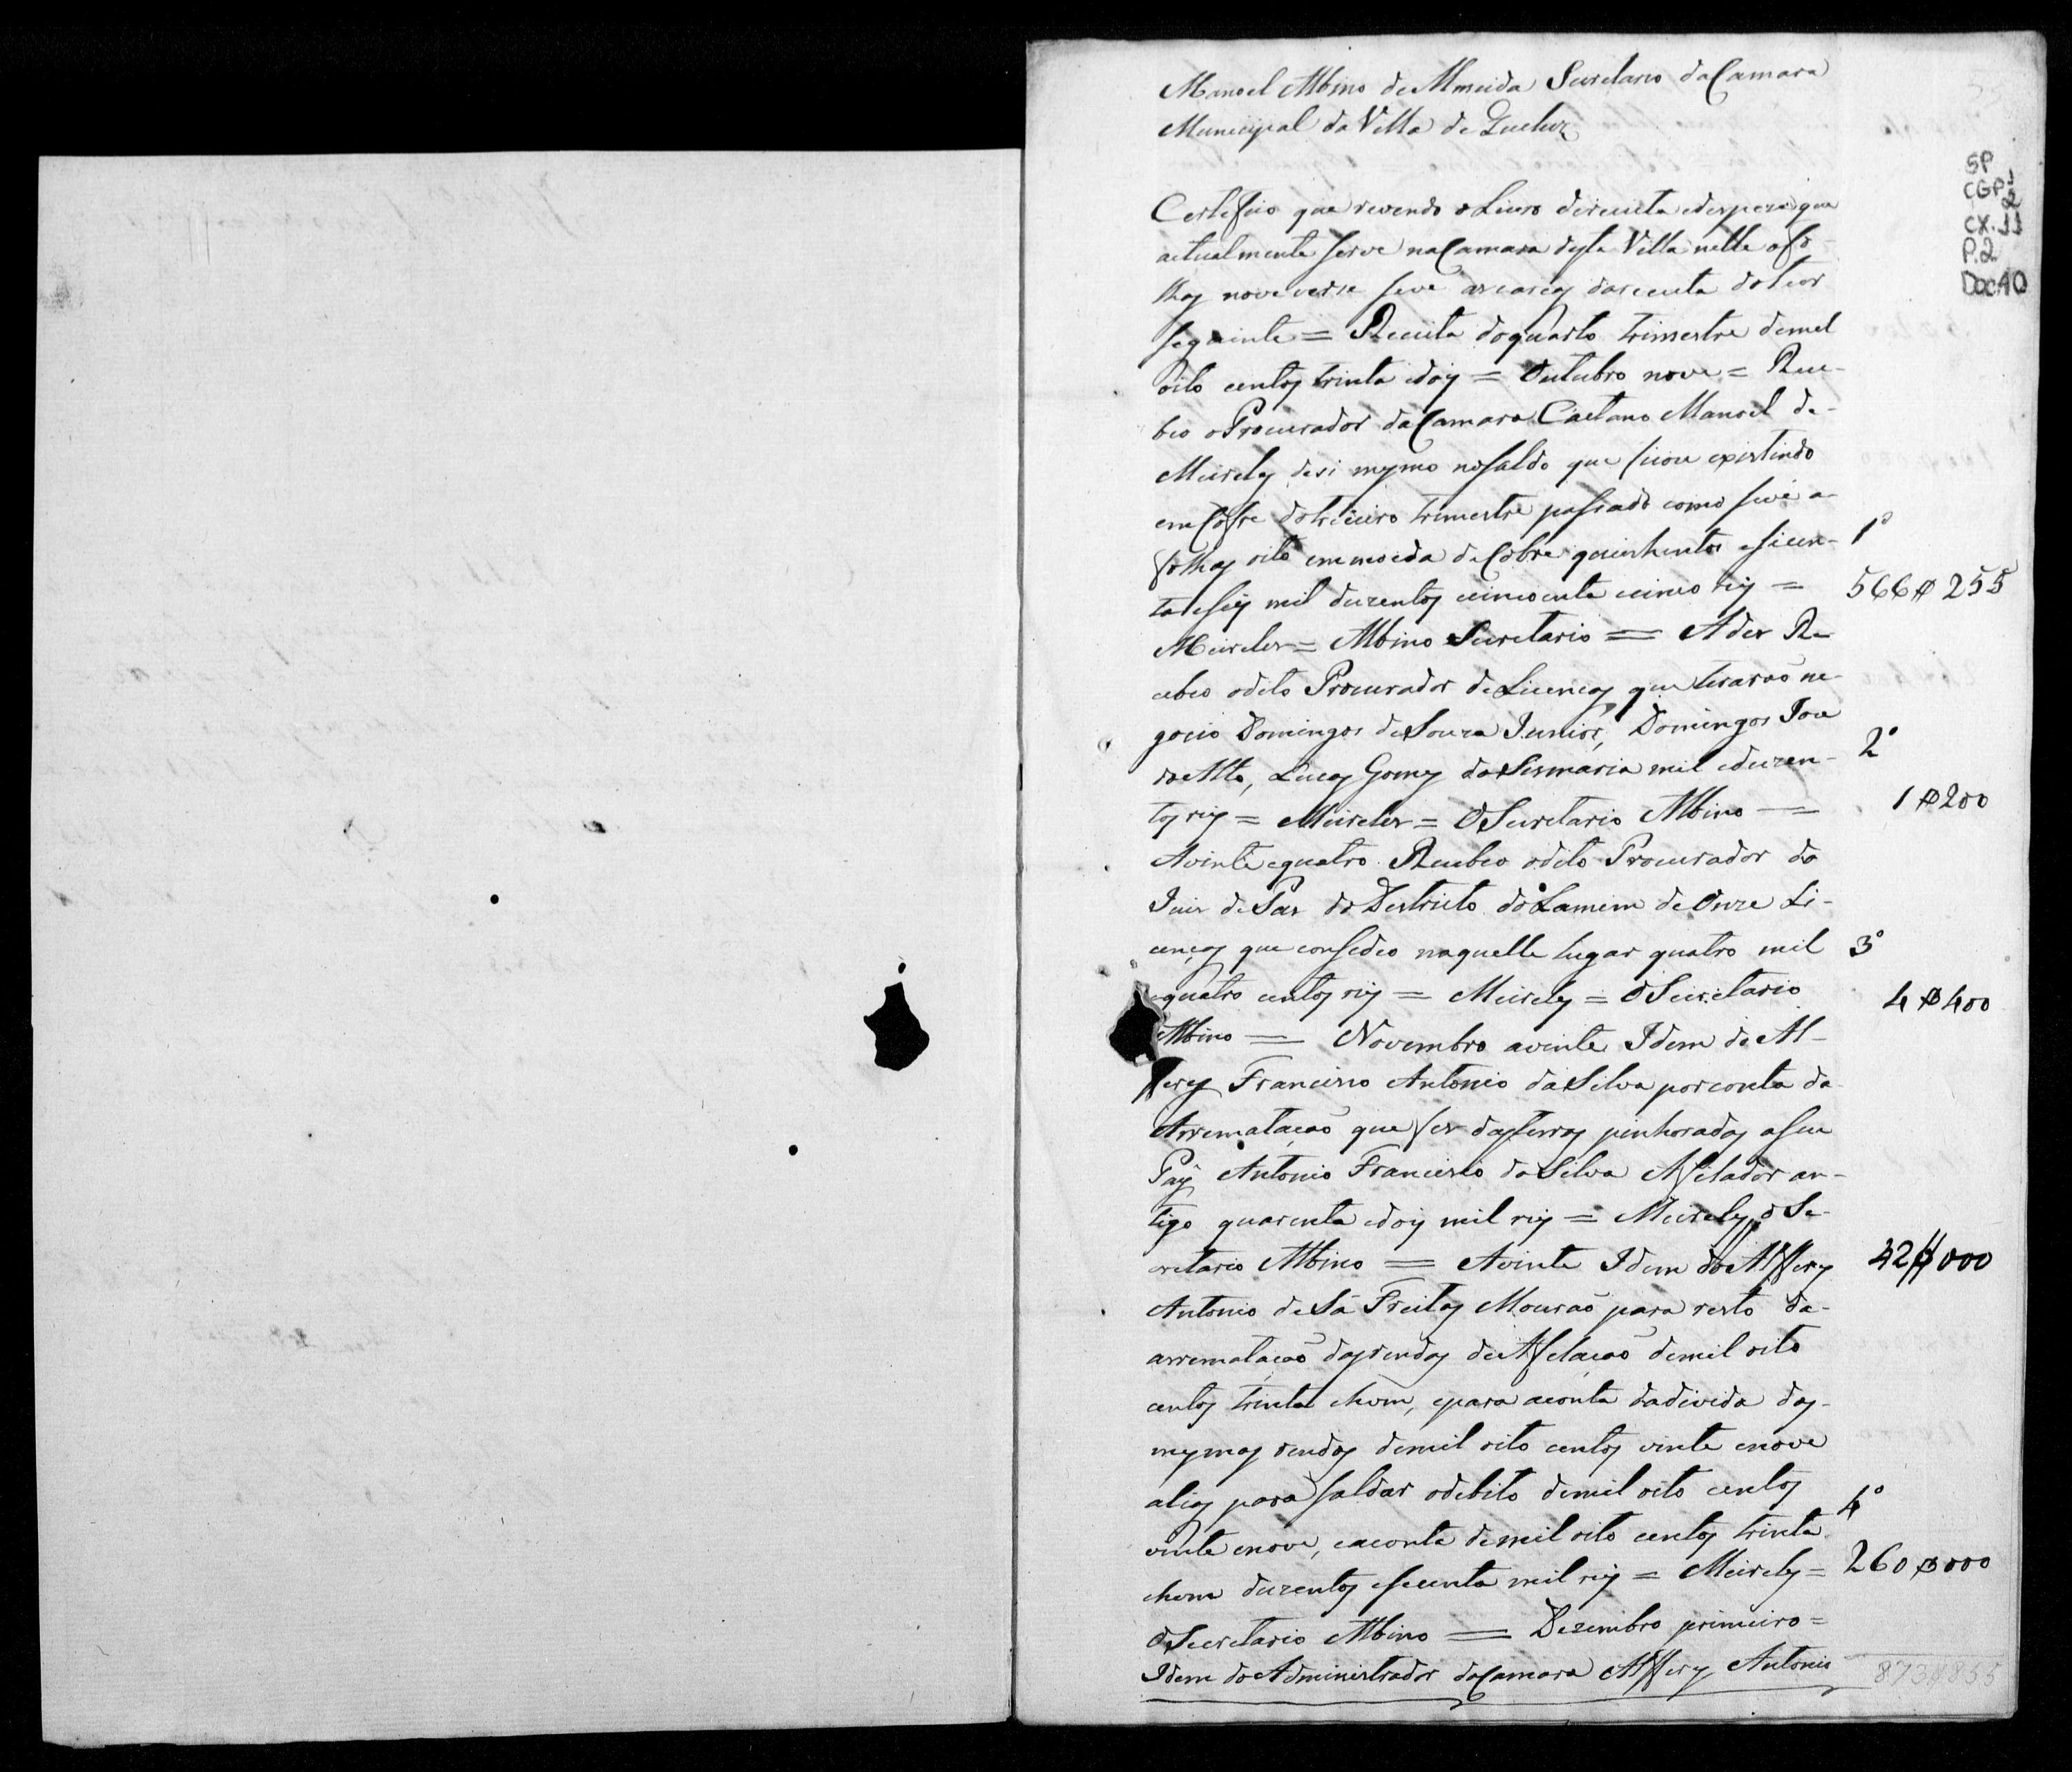 Manoel Albino de Almeida Secretario da Camara
Municipal da Villa de Queluz
SP
CGP 1
2
CX. 11
P. 2
Doc 40
Certefico que revendo o Livro dereceita edespeza que
actualmente serve na Camara desta Villa nelle afo-
lhas nove verse seve as careg da receita do teor
seguinte = Receita do quarto trimestre demil
oito centos trinta edois = Outubro nove = Rece-
beo o Procurador da Camara Caetano Manoel de-
Meireles desi mesmo no saldo que ficou existindo
em Cofre do treceiro trimestre passado como sevê a-
folhas oito em moeda de Cobre quinhentos esecen- 1º
ta eseis mil duzentos ecincoenta ecinco reis = 566$255
Meireles = Albino Secretario = A dez Re-
cebeo odito Procurador de Licenças que tirarão ne-
gocio Domingos de Souza Junior, Domingos Joze
da Mta, Lucas Gomes da Sismaria mil eduzen- 2º
tos reis = Meireles = O Secretario Albino = 1$200
Avinte equatro Recebeo odito Procurador do
Juis de Pas do Destricto do Lamim de Onze Li-
cenças que consedeo naquelle lugar quatro mil 3º
equatro centos reis = Meireles = O Secretario 4$400
Albino = Novembro avinte Idem do Al-
feres Francisco Antonio da Silva por conta da
Arrematação que fes das terras pinhoradas aseu
Pay Antonio Francisco da Silva Afilador an-
tigo quarenta edois mil reis = Meireles, o Se-
cretario Albino = Avinte Idem do Alferes 42$000
Antonio de Sá Freitas Mourão para resto da-
arrematação das rendas de Afilação demil oito
centos trinta ehum, epara aconta da divida das-
mesmas rendas demil oito centos vinte enove
alias para saldar odebito demil oito centos
vinte enove, eaconta demil oito centos trinta 4º
ehum duzentos esecenta mil reis = Meireles = 260$000
O Secretario Albino = Dezembro primeiro =
Idem do Administrador da Camara Alferes Antonio 873$855